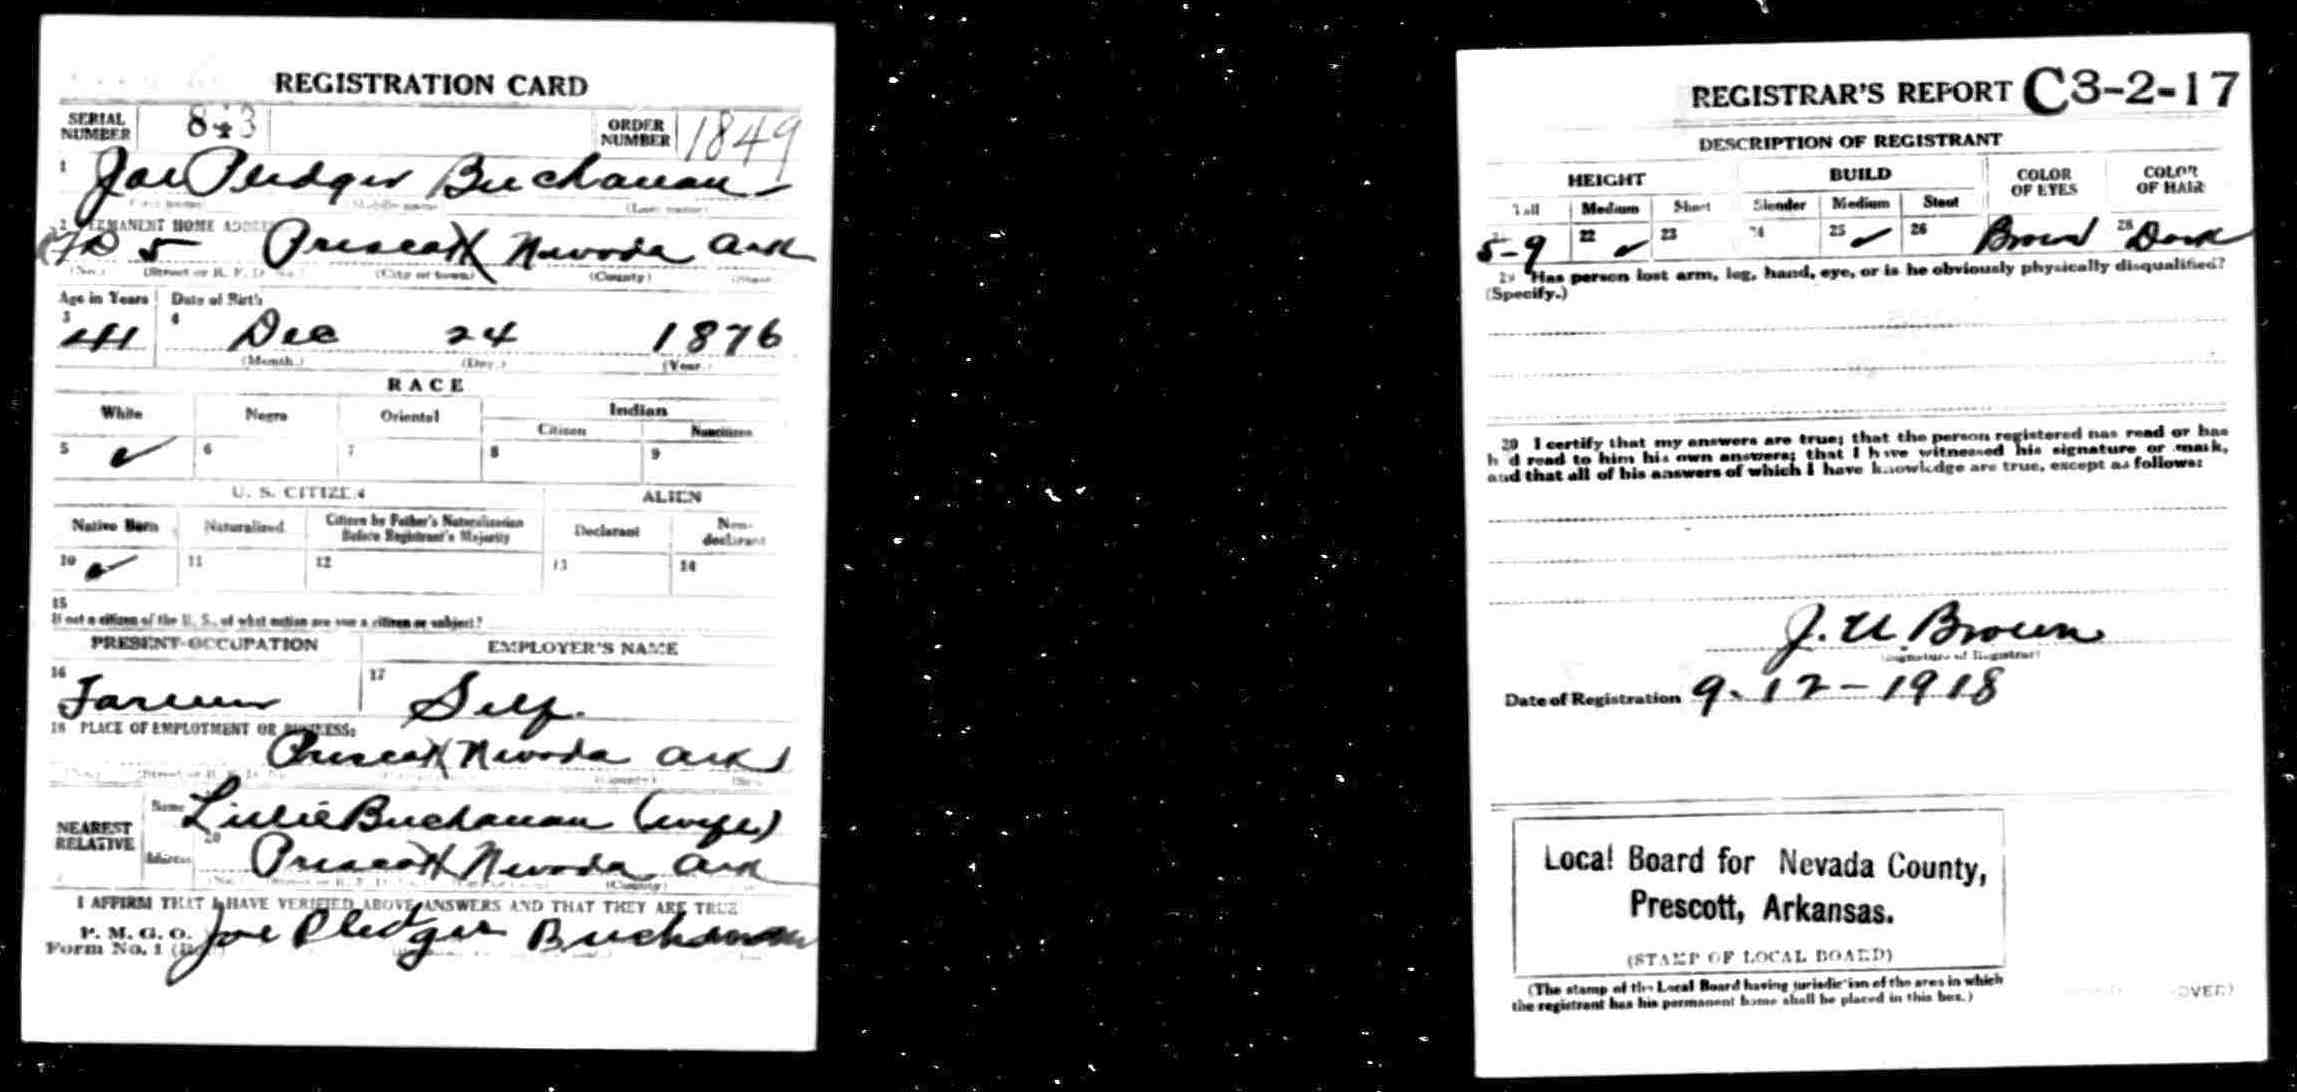 REGISTRATION CARD
SERIAL NUMBER 843 ORDER NUMBER 1849
1 Joe Pledger Buchanan
(First name) (Middle name) (Last name)
2 PERMANENT HOME ADDRESS
5 Prescott Nevada Ark
(No.) (Street or R. F. D. No.) (City or town) (County) (State)
Age in Years Date of Birth
3 41 4 Dec 24 1876
(Month.) (Day.) (Year.)
RACE
White Negro Oriental Indian
Citizen Noncitizen
5 ✓ 6 7 8 9
U. S. CITIZEN ALIEN
Native Born Naturalized Citizen by Father's Naturalization Before Registrant's Majority Declarant Non-declarant
10 ✓ 11 12 13 14
15
If not a citizen of the U. S., of what nation are you a citizen or subject?
PRESENT OCCUPATION EMPLOYER'S NAME
16 Farmer 17 Self.
18 PLACE OF EMPLOYMENT OR BUSINESS:
Prescott Nevada Ark
(County)
NEAREST RELATIVE Name Lillie Buchanan (wife)
20 Address Prescott Nevada Ark
(County)
I AFFIRM THAT I HAVE VERIFIED ABOVE ANSWERS AND THAT THEY ARE TRUE
P. M. G. O.
Form No. 1 Joe Pledger Buchanan
REGISTRAR'S REPORT C3-2-17
DESCRIPTION OF REGISTRANT
HEIGHT BUILD COLOR OF EYES COLOR OF HAIR
Tall Medium Short Slender Medium Stout
5-9 22 ✓ 23 24 25 ✓ 26 Brown 28 Dark
29 Has person lost arm, leg, hand, eye, or is he obviously physically disqualified?
(Specify.)
30 I certify that my answers are true; that the person registered has read or has
had read to him his own answers; that I have witnessed his signature or mark,
and that all of his answers of which I have knowledge are true, except as follows:
J. U Brown
(Signature of Registrar)
Date of Registration 9-12-1918
Local Board for Nevada County,
Prescott, Arkansas.
(STAMP OF LOCAL BOARD)
(The stamp of the Local Board having jurisdiction of the area in which
the registrant has his permanent home shall be placed in this box.)
(OVER)